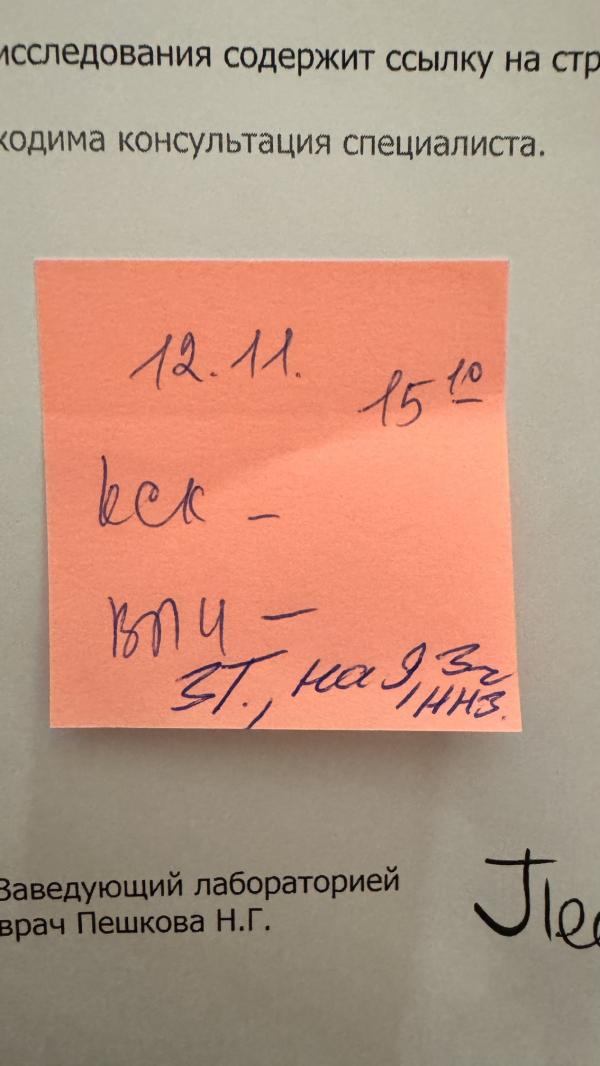 исследования содержит ссылку на стр
ходима консультация специалиста.
12.11.
15 10
КСК -
ВПЧ -
ЗТ., на Я, Зч
ННЗ.
Заведующий лабораторией
врач Пешкова Н.Г.
Пе